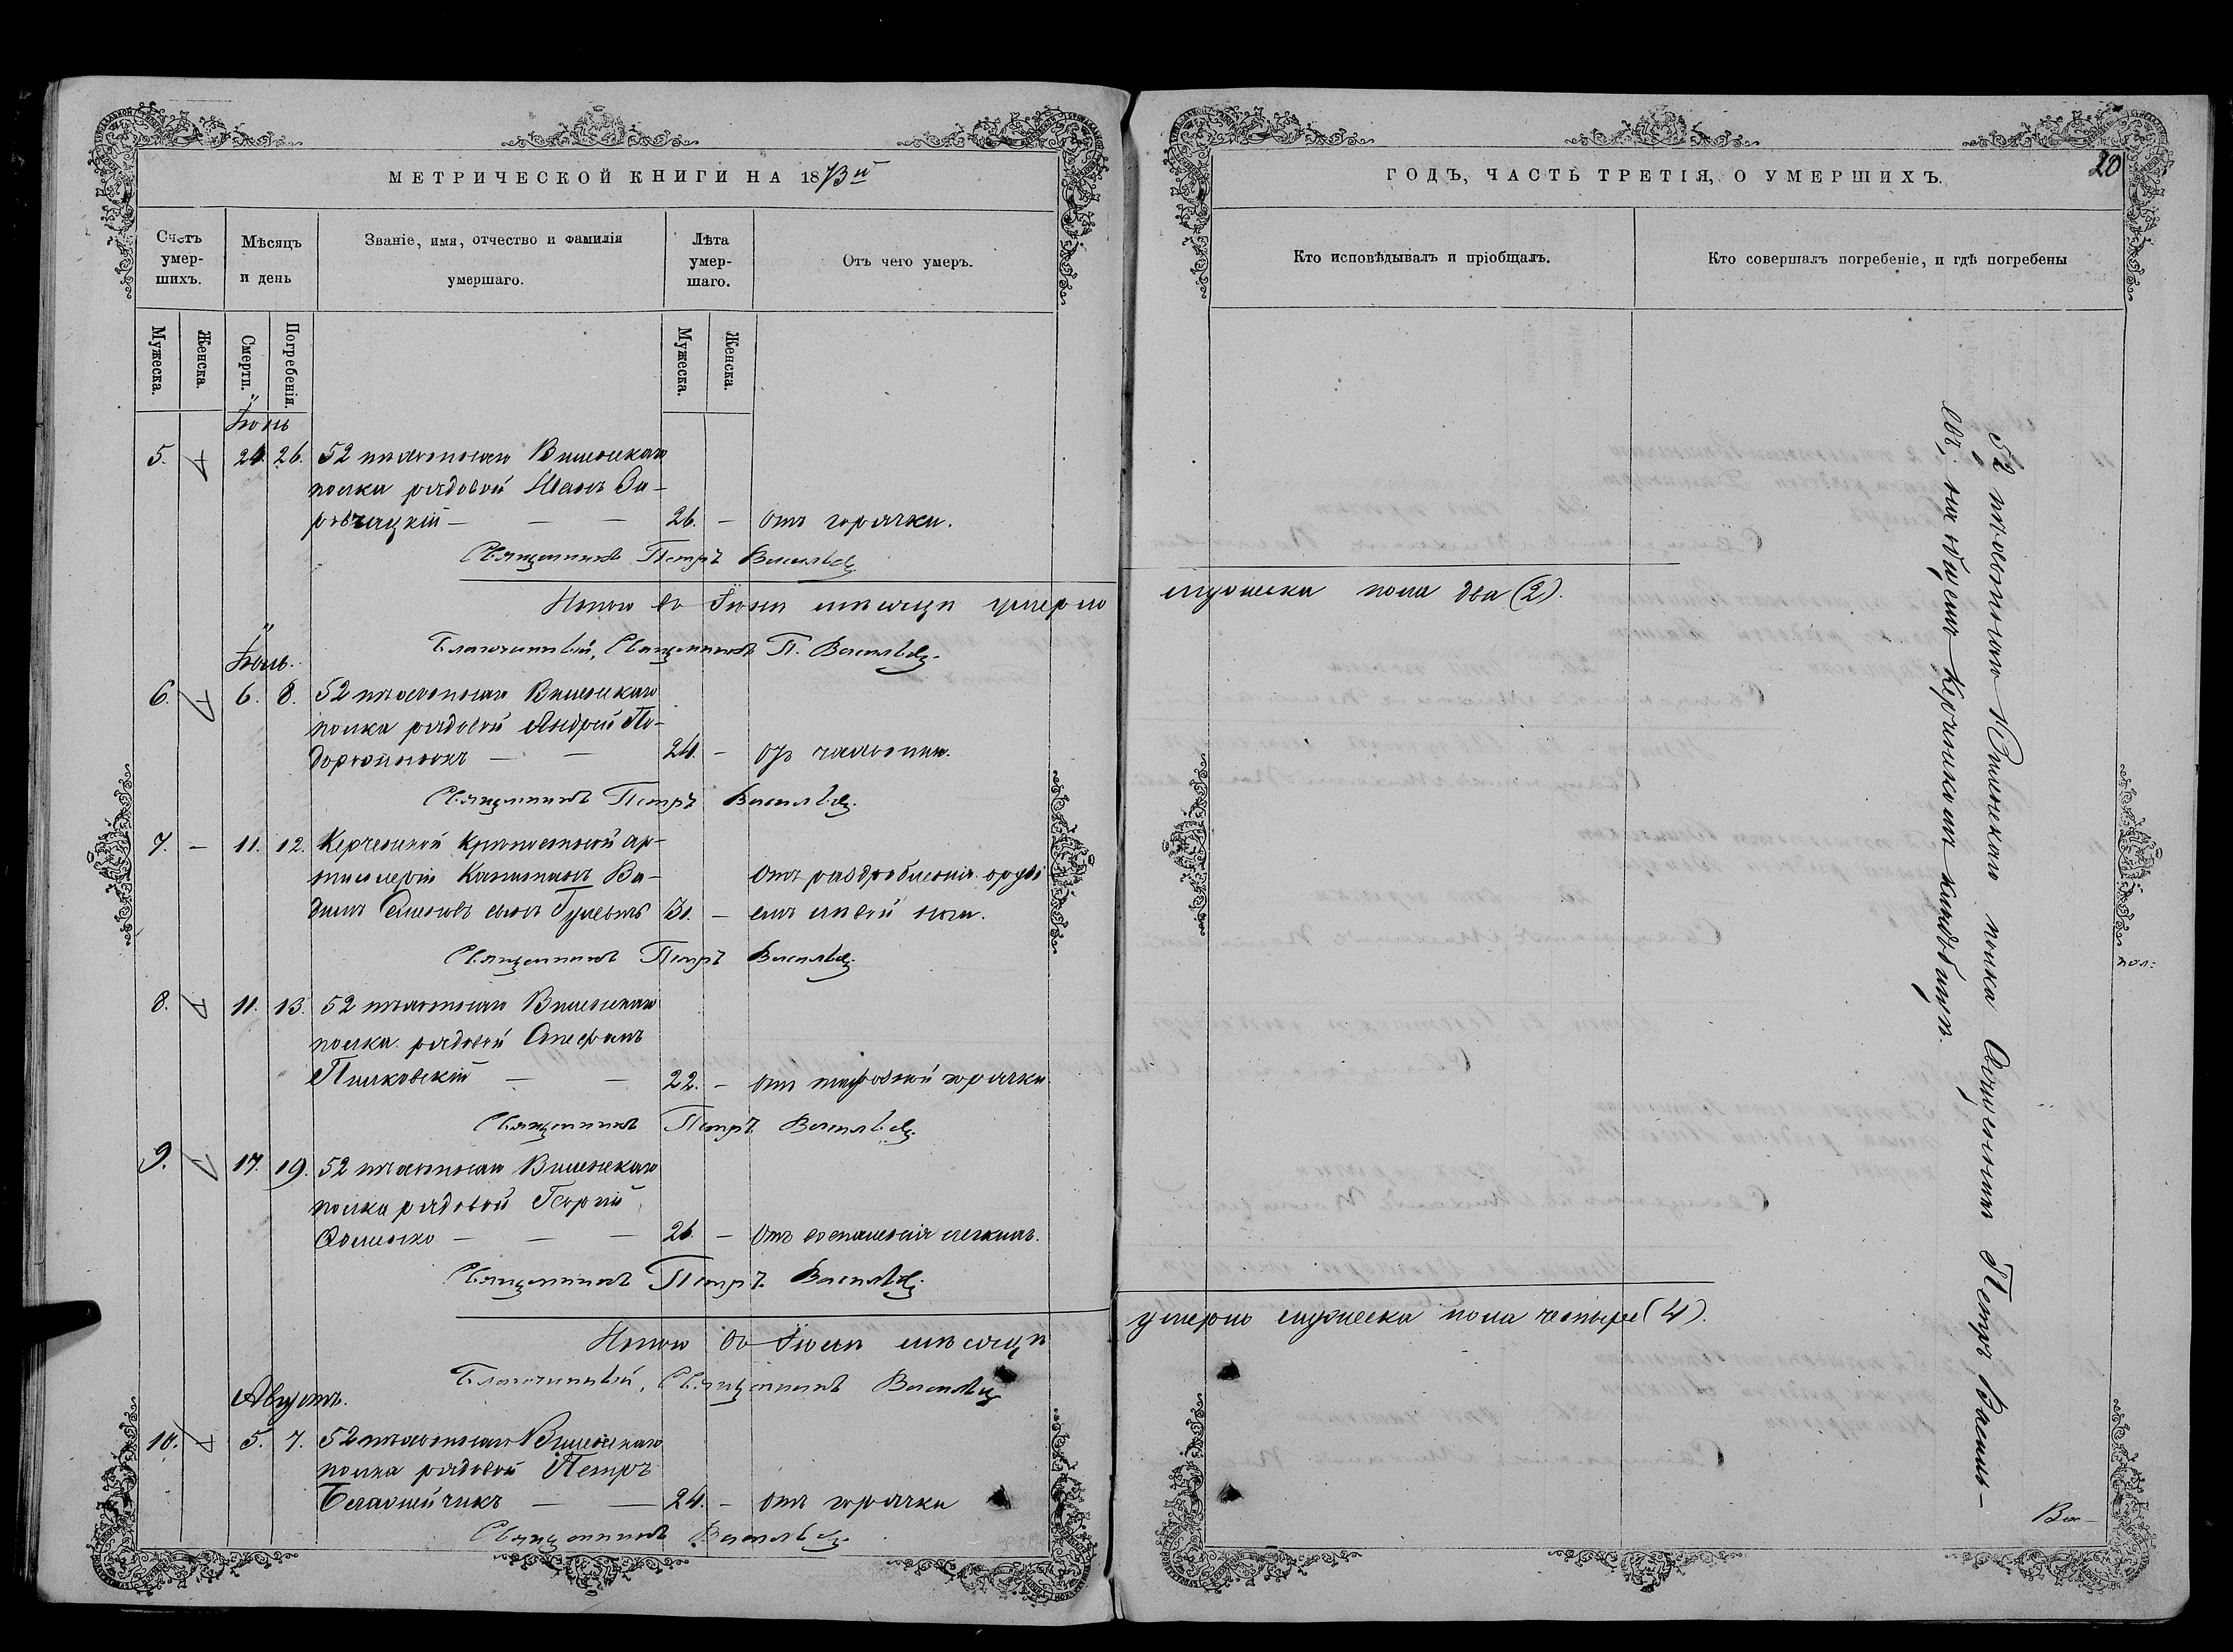 МЕТРИЧЕСКОЙ КНИГИ НА 1873й
Счетъ умер-шихъ.
Мѣсяцъ и день
Званіе, имя, отчество и фамилія умершаго.
Лѣта умер-шаго.
Отъ чего умеръ.
Мужеска.
Женска.
Смерти.
Погребенія.
Мужеска.
Женска.
Іюнь
5. 24. 26. 52 пѣхотнаго Виленскаго
полка рядовой Иванъ
26. — отъ горячки.
Священникъ Петръ Васильевъ
Итого въ Іюнѣ мѣсяцѣ умерло
Благочинный, Священникъ П. Васильевъ.
Іюль.
6. 6. 8. 52 пѣхотнаго Виленскаго
полка рядовой Андрей
24. —
Священникъ Петръ Васильевъ.
7. — 11. 12. Керченской Крѣпостной ар-
тиллеріи Капитанъ Ва-
димъ Семеновъ сынъ
отъ раздробленія оруді
емъ лѣвой ноги.
Священникъ Петръ Васильевъ
8. 11. 13. 52 пѣхотнаго Виленскаго
полка рядовой Стефанъ
22. — отъ тифозной горячки.
Священникъ Петръ Васильевъ.
9. 17. 19. 52 пѣхотнаго Виленскаго
полка рядовой Георгій
26. — отъ воспаленія легкихъ.
Священникъ Петръ Васильевъ.
Итого въ Іюлѣ мѣсяцѣ
Благочинный, Священникъ Васильевъ
Августъ.
10. 5. 7. 52 пѣхотнаго Виленскаго
полка рядовой Петръ
24. — отъ горячки
Священникъ Васильевъ.
ГОДЪ, ЧАСТЬ ТРЕТІЯ, О УМЕРШИХЪ.
20
Кто исповѣдывалъ и пріобщалъ.
Кто совершалъ погребеніе, и гдѣ погребены
мужеска пола два (2).
умерло мужеска пола четыре (4).
52 пѣхотнаго Виленскаго полка Священникъ Петръ Василь-
евъ, на общемъ Керченскомъ кладбищѣ.